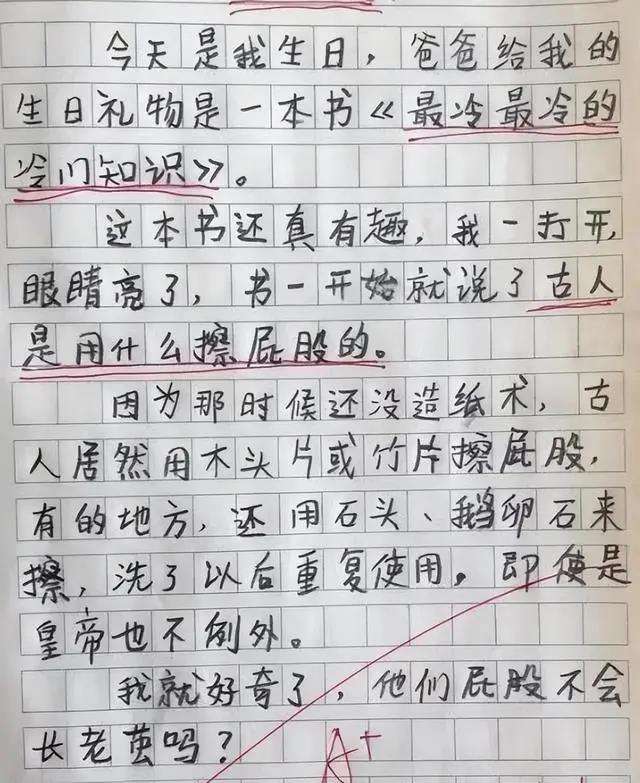 今天是我生日，爸爸给我的
生日礼物是一本书《最冷最冷的
冷门知识》。
这本书还真有趣，我一打开，
眼睛亮了，书一开始就说了古人
是用什么擦屁股的。
因为那时候还没造纸术，古
人居然用木头片或竹片擦屁股，
有的地方，还用石头、鹅卵石来
擦，洗了以后重复使用。即使是
皇帝也不例外。
我就好奇了，他们屁股不会
长老茧吗？
A+